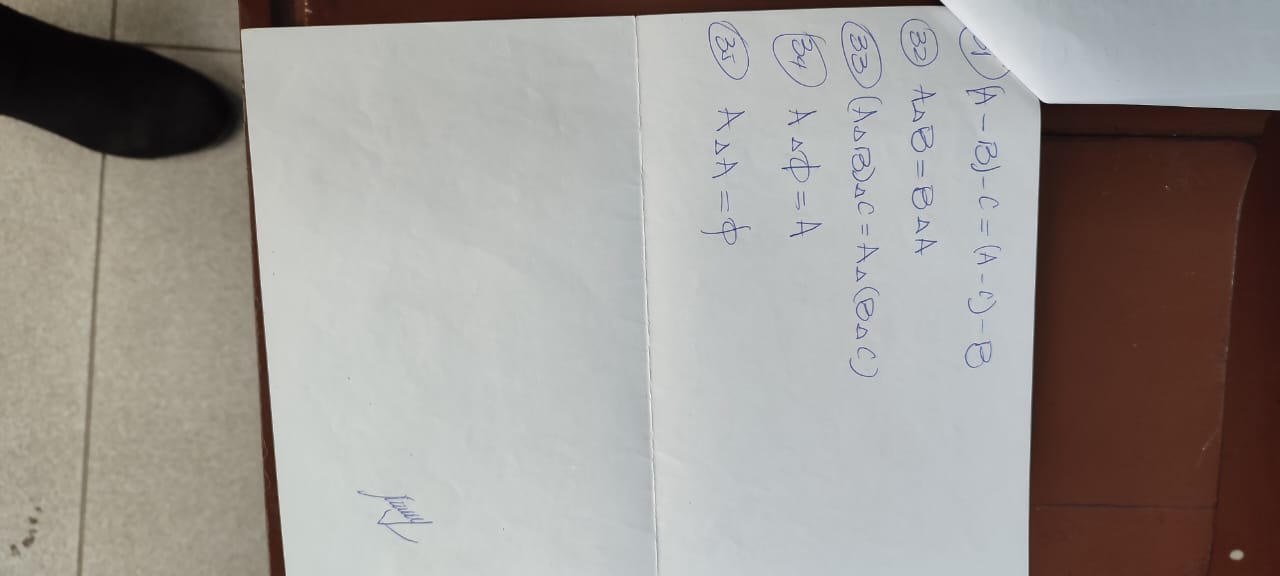 (A - B) - C = (A - C) - B
32 A △ B = B △ A
33 (A △ B) △ C = A △ (B △ C)
34 A △ Φ = A
35 A △ A = Φ